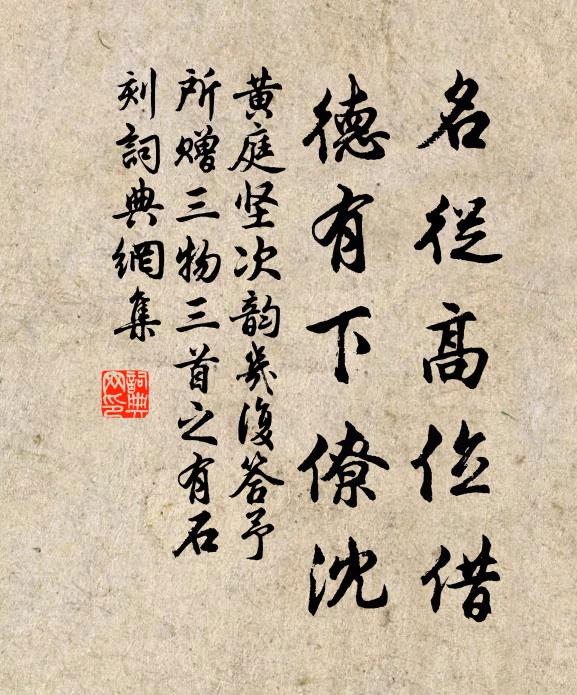 名從高位借
德有下僚沈
黄庭坚次韵幾復答予
所贈三物三首之有石
刻詞典網集
詞典
网印